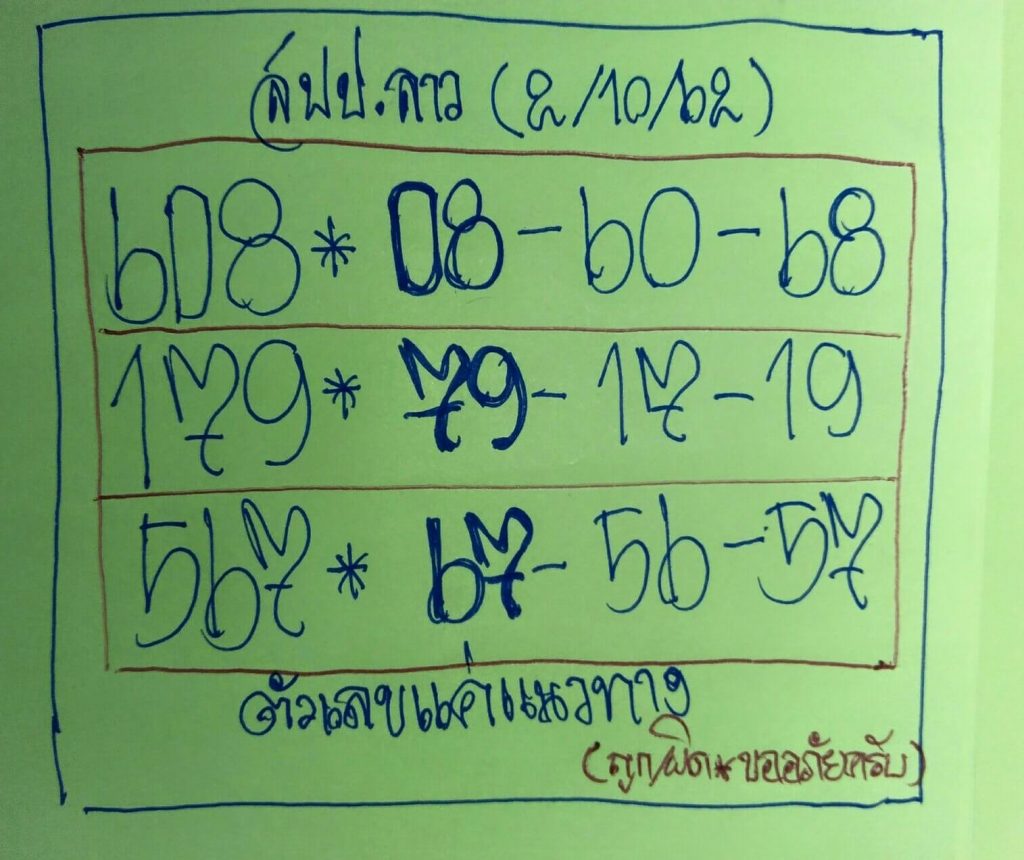 สปป.ลาว (2/10/62)
608 * 08 - 60 - 68
179 * 79 - 17 - 19
567 * 67 - 56 - 57
ตัวเลขแค่แนวทาง
(ถูก/ผิด*ขออภัยครับ)